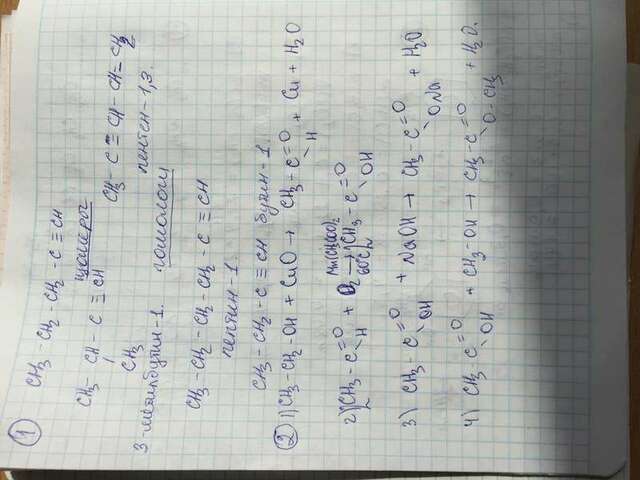 1
CH3 - CH2 - CH2 - C ≡ CH
изомеры
CH3 - CH - C ≡ CH
CH3 - C ≡ CH - CH = CH2
CH3
3-метилбутин-1.
пентен-1,3.
гомологи
CH3 - CH2 - CH2 - CH2 - C ≡ CH
пептин-1
CH3 - CH2 - C ≡ CH бутин-1.
2 1) CH3 - CH2 - OH + CuO → CH3 - C =O H + Cu + H2O
2) 2CH3 - C =O H + O2 Mn(CH3COO)2 → 60°C 2CH3 - C =O OH
3) CH3 - C =O OH + NaOH → CH3 - C =O ONa + H2O
4) CH3 - C =O OH + CH3 - OH → CH3 - C =O O - CH3 + H2O.